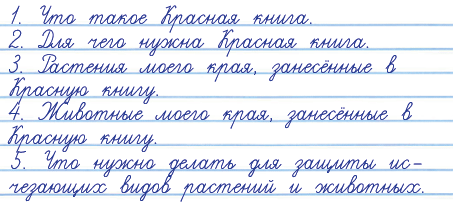 1. Что такое Красная книга.
2. Для чего нужна Красная книга.
3. Растения моего края, занесённые в
Красную книгу.
4. Животные моего края, занесённые в
Красную книгу.
5. Что нужно делать для защиты ис-
чезающих видов растений и животных.